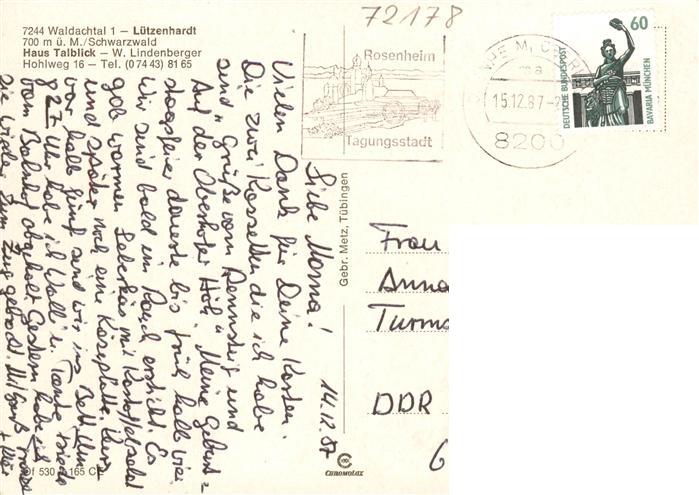 72178
7244 Waldachtal 1 – Lützenhardt
700 m ü. M./Schwarzwald
Haus Talblick – W. Lindenberger
Hohlweg 16 – Tel. (0 74 43) 81 65
Rosenheim
Tagungsstadt
15.12.87
8200
60
DEUTSCHE BUNDESPOST
BAVARIA MÜNCHEN
14.12.87
Liebe Mama!
Vielen Dank für Deine Karten.
Die zwei Kassetten die ich habe
sind „Grüße vom Rennsteig und
Auf der Oberhofer Höh". Meine Geburts=
tagsfeier dauerte bis früh halb vier
Wir sind bald im Rauch erstickt. Es
gab warmen Leberkäs mit Kartoffelsalat
und später noch eine Käseplatte. Kurz
vor halb fünf sind wir ins Bett. Um
9 27 Uhr habe ich Walli u. Tante
vom Bahnhof abgeholt. Gestern habe ich
sie wieder zum Zug gebracht.
Gebr. Metz, Tübingen
Frau
Anna
Turm
DDR
6
CHROMOLUX
Df 530 165 CE